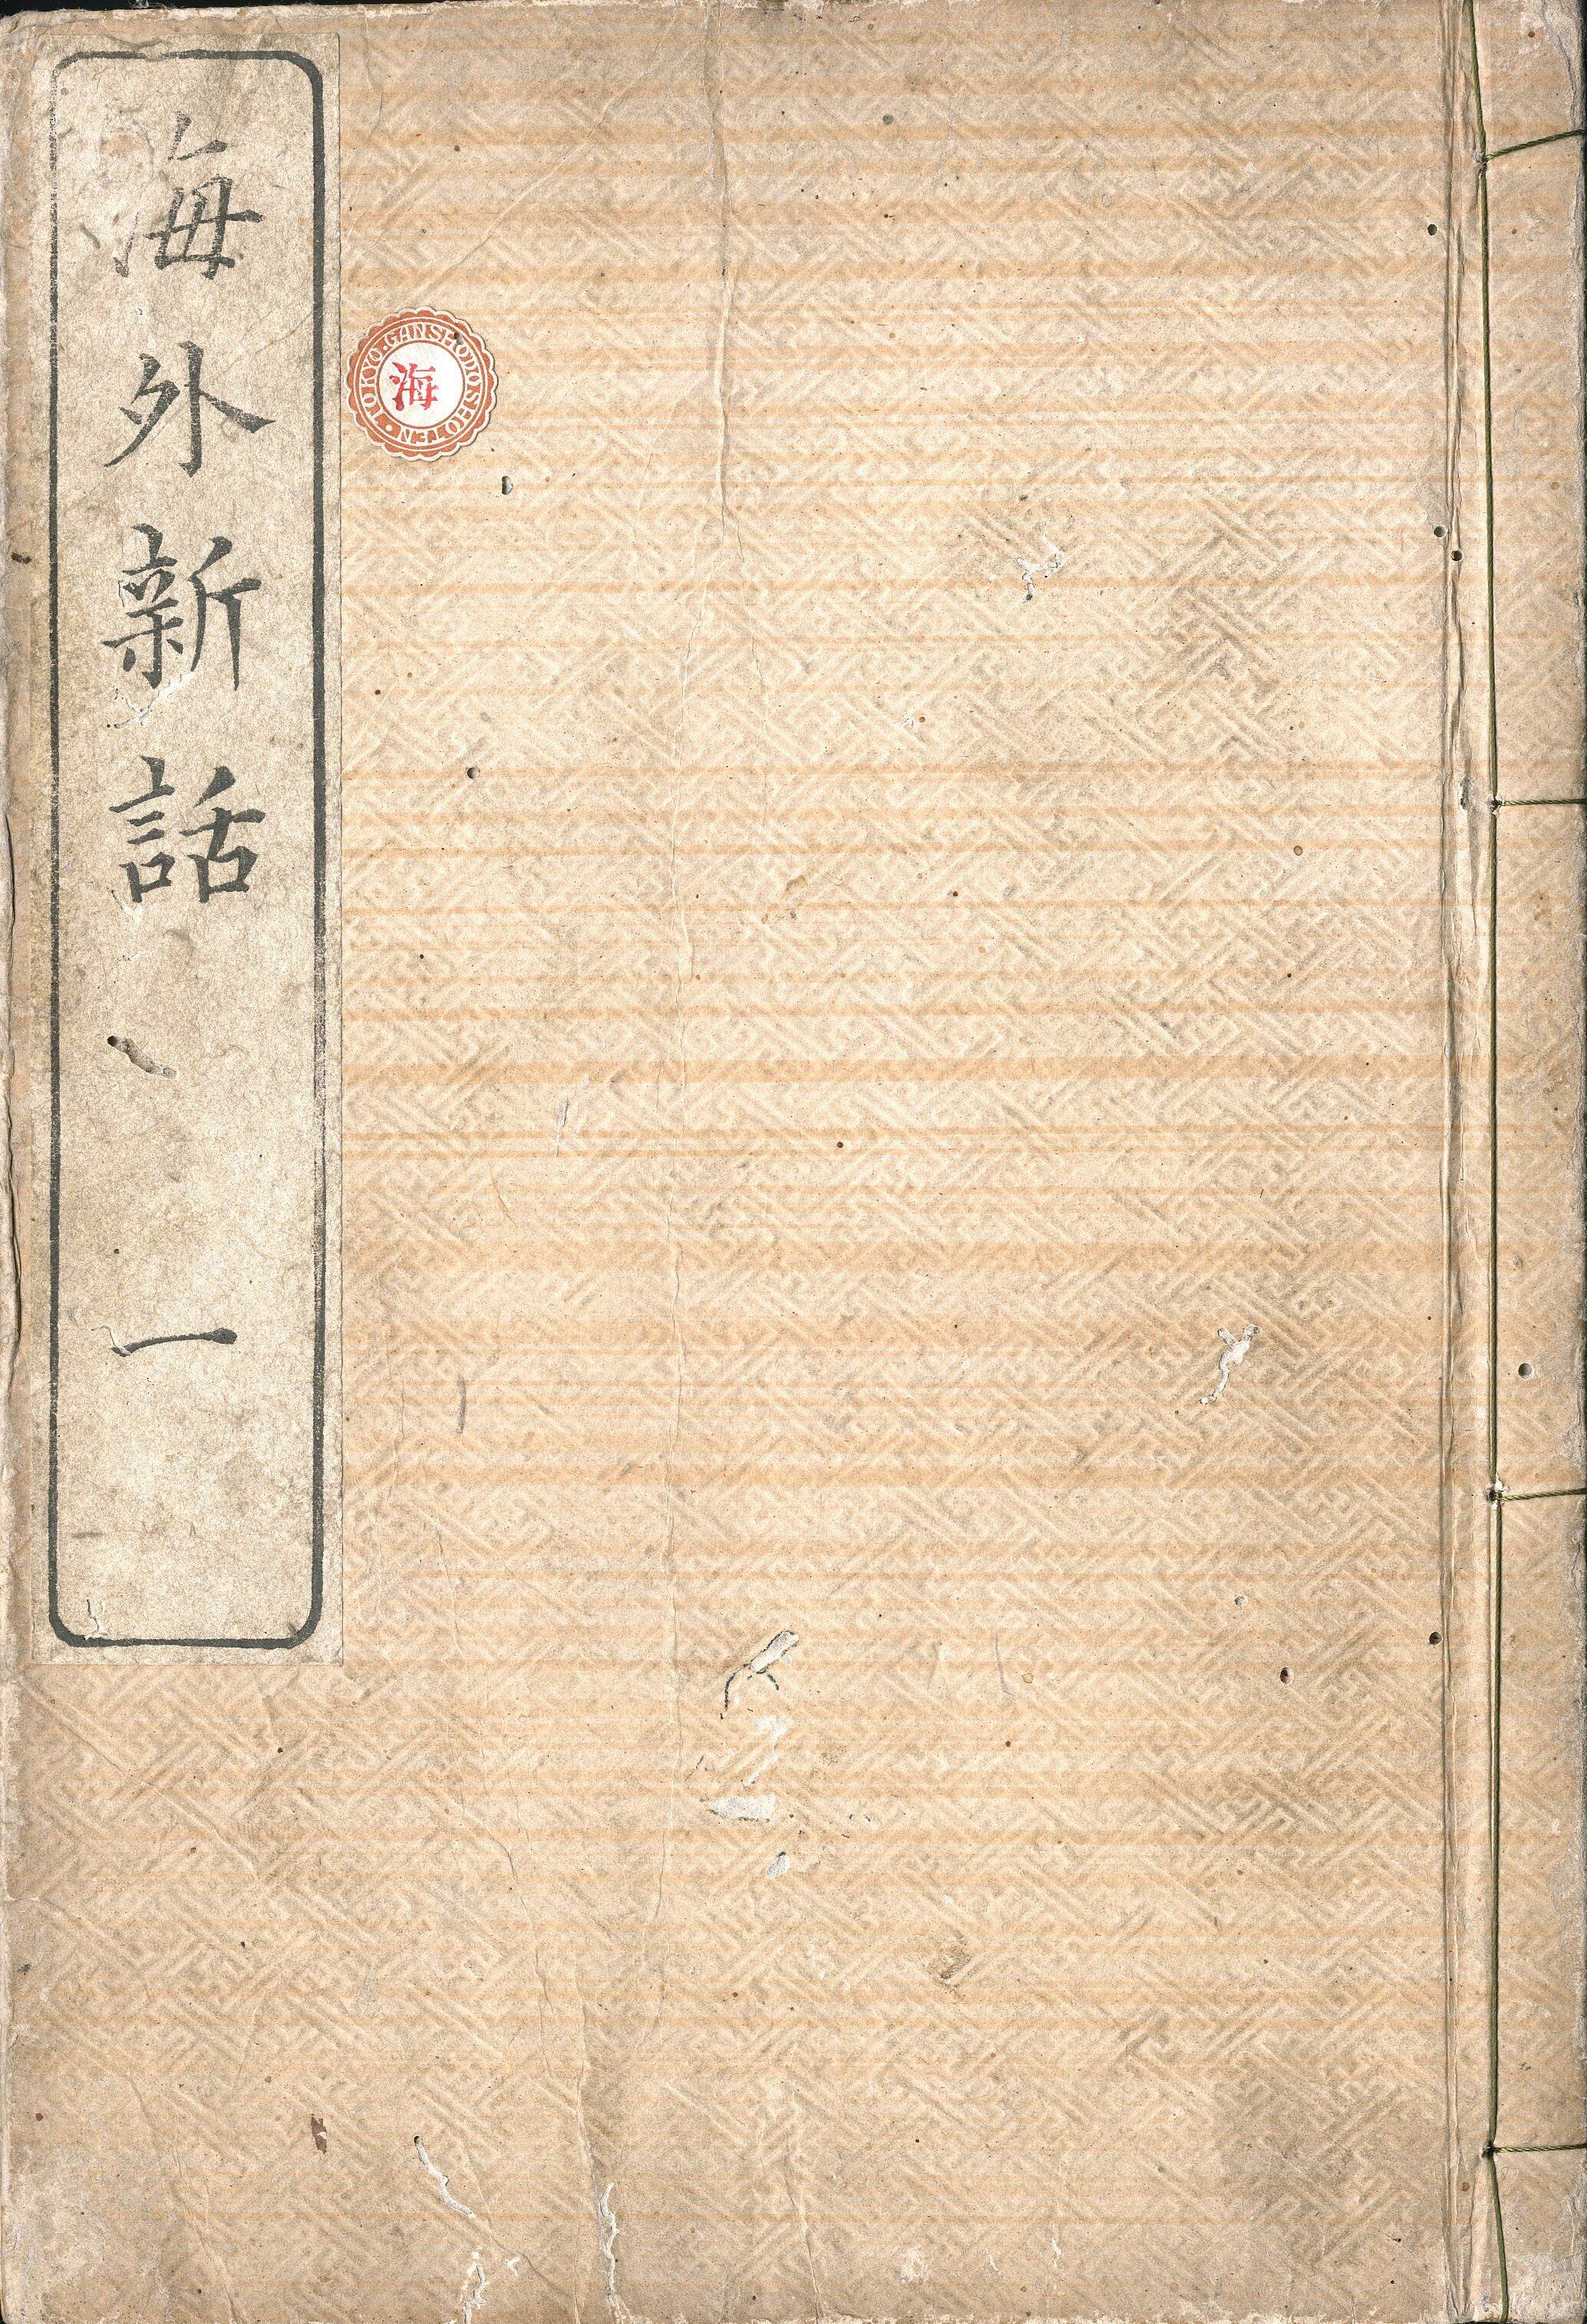 海外新話 一
TOKYO・GANSHODOSHOTEN・
海